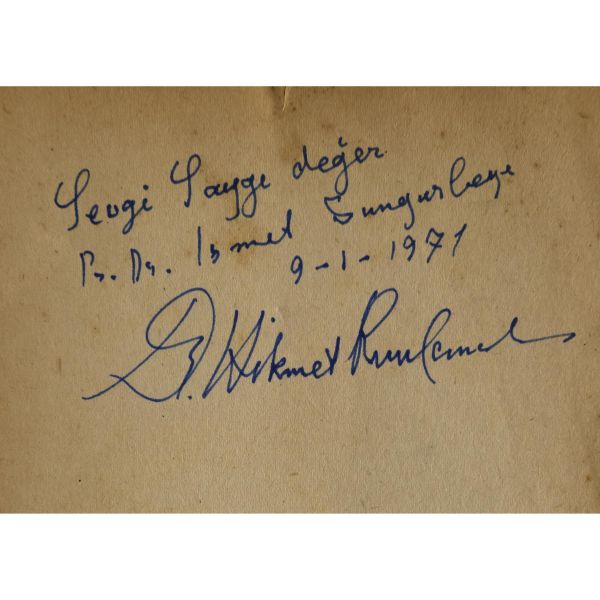 Sevgi Saygı değer
Pr. Dr. İsmet Sungurbeye
9-1-1971
D. Hikmet Kıvılcımlı